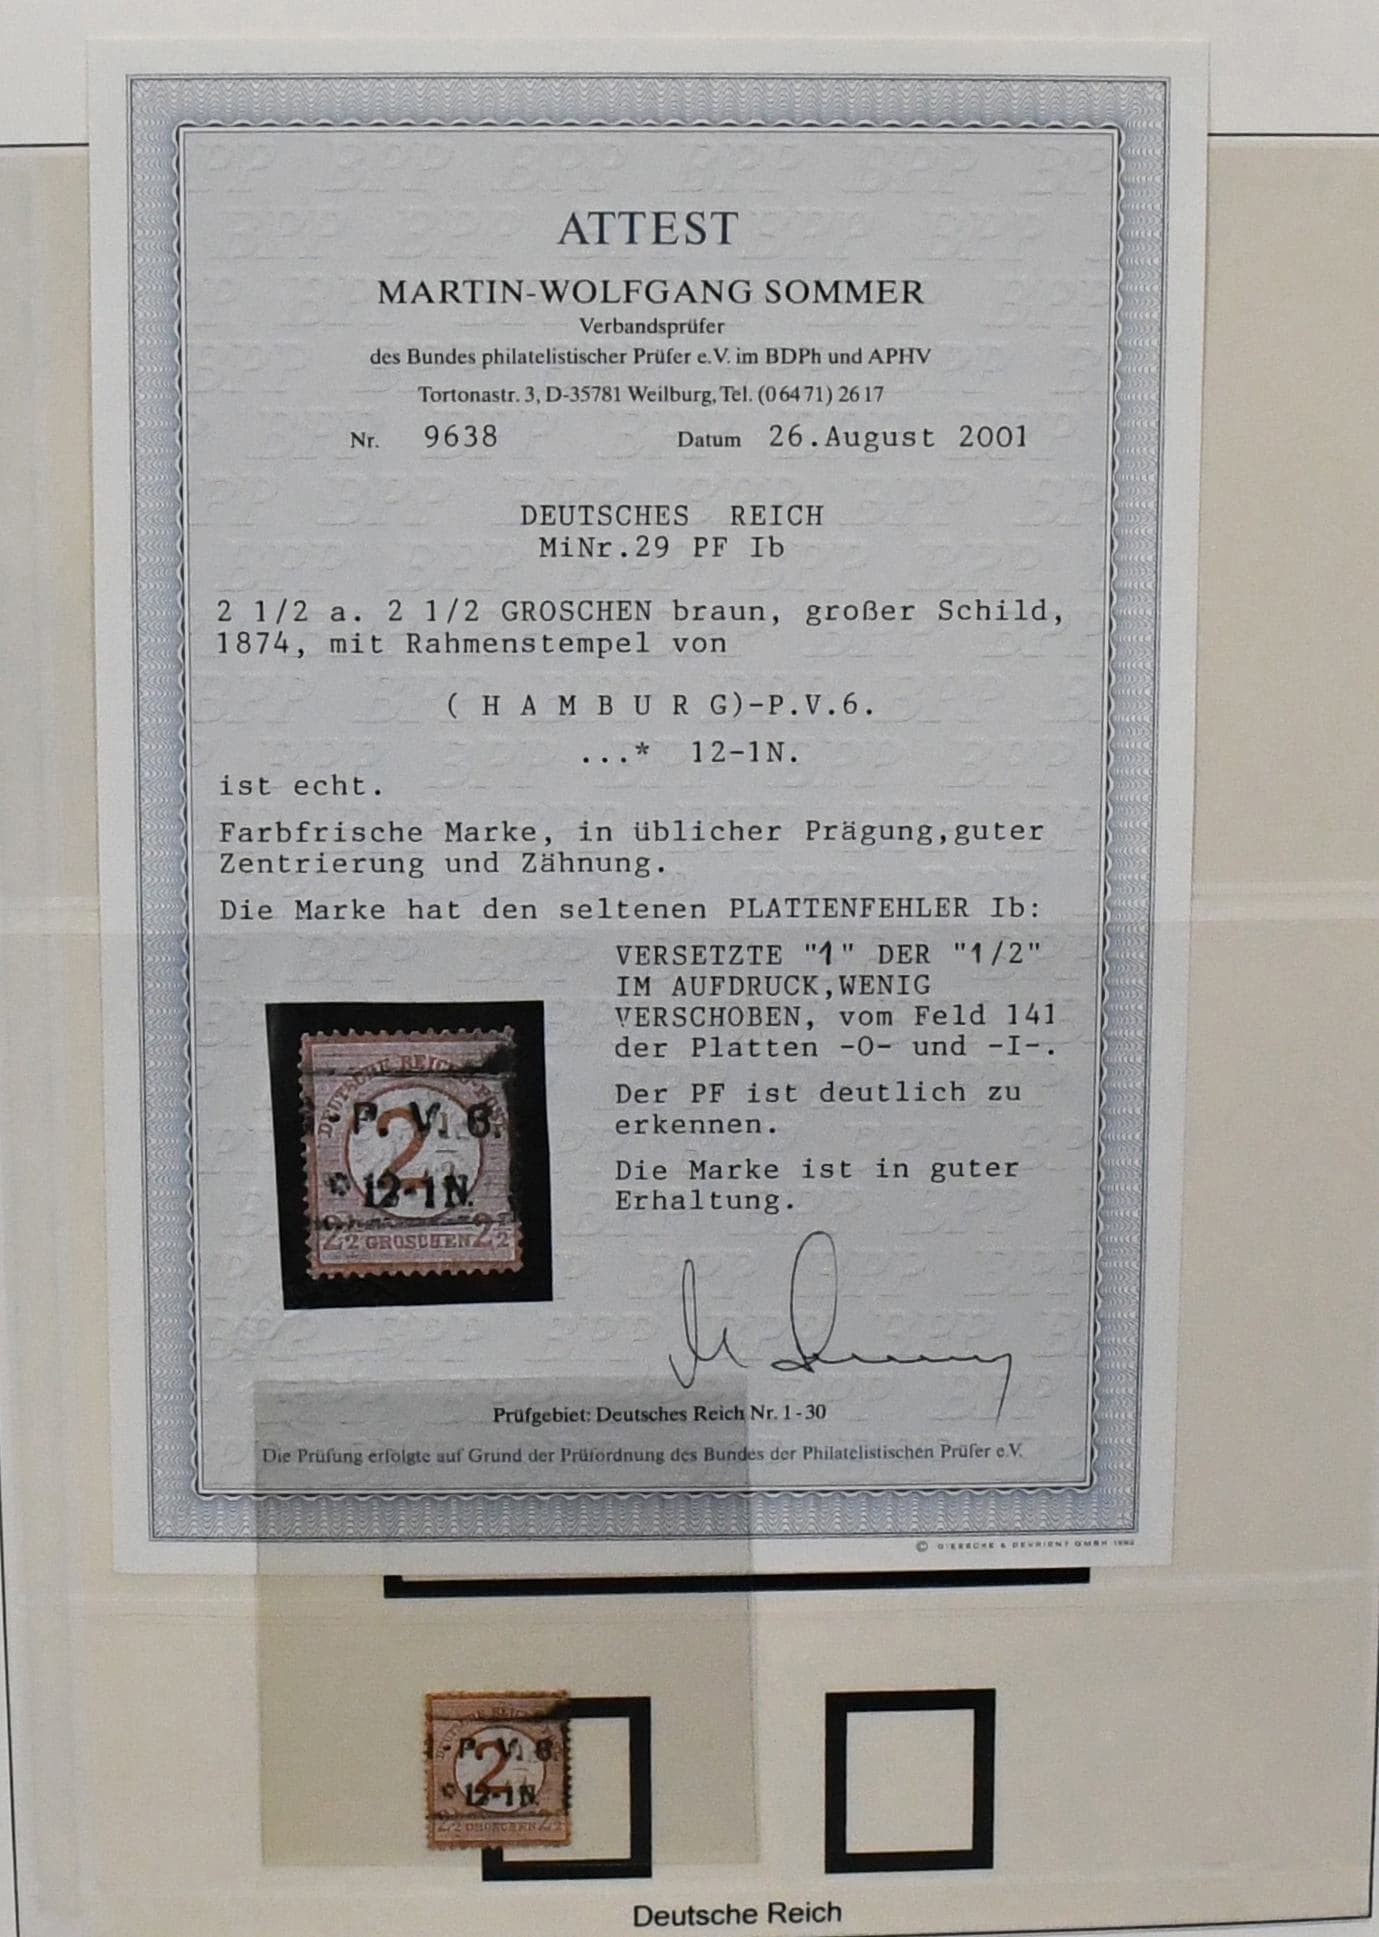 ATTEST
MARTIN-WOLFGANG SOMMER
Verbandsprüfer
des Bundes philatelistischer Prüfer e.V. im BDPh und APHV
Tortonastr. 3, D-35781 Weilburg, Tel. (0 64 71) 26 17
Nr. 9638 Datum 26.August 2001
DEUTSCHES REICH
MiNr.29 PF Ib
2 1/2 a. 2 1/2 GROSCHEN braun, großer Schild,
1874, mit Rahmenstempel von
( H A M B U R G)-P.V.6.
...* 12-1N.
ist echt.
Farbfrische Marke, in üblicher Prägung,guter
Zentrierung und Zähnung.
Die Marke hat den seltenen PLATTENFEHLER Ib:
VERSETZTE "1" DER "1/2"
IM AUFDRUCK,WENIG
VERSCHOBEN, vom Feld 141
der Platten -O- und -I-.
Der PF ist deutlich zu
erkennen.
Die Marke ist in guter
Erhaltung.
DEUTSCHE REICHS-POST
P. V. 6.
2
12-1N.
2 1/2 GROSCHEN 2 1/2
Prüfgebiet: Deutsches Reich Nr. 1-30
Die Prüfung erfolgte auf Grund der Prüfordnung des Bundes der Philatelistischen Prüfer e.V.
© GIESECKE & DEVRIENT GMBH
P. V. 6.
2
12-1N.
2 1/2 GROSCHEN 2 1/2
Deutsche Reich